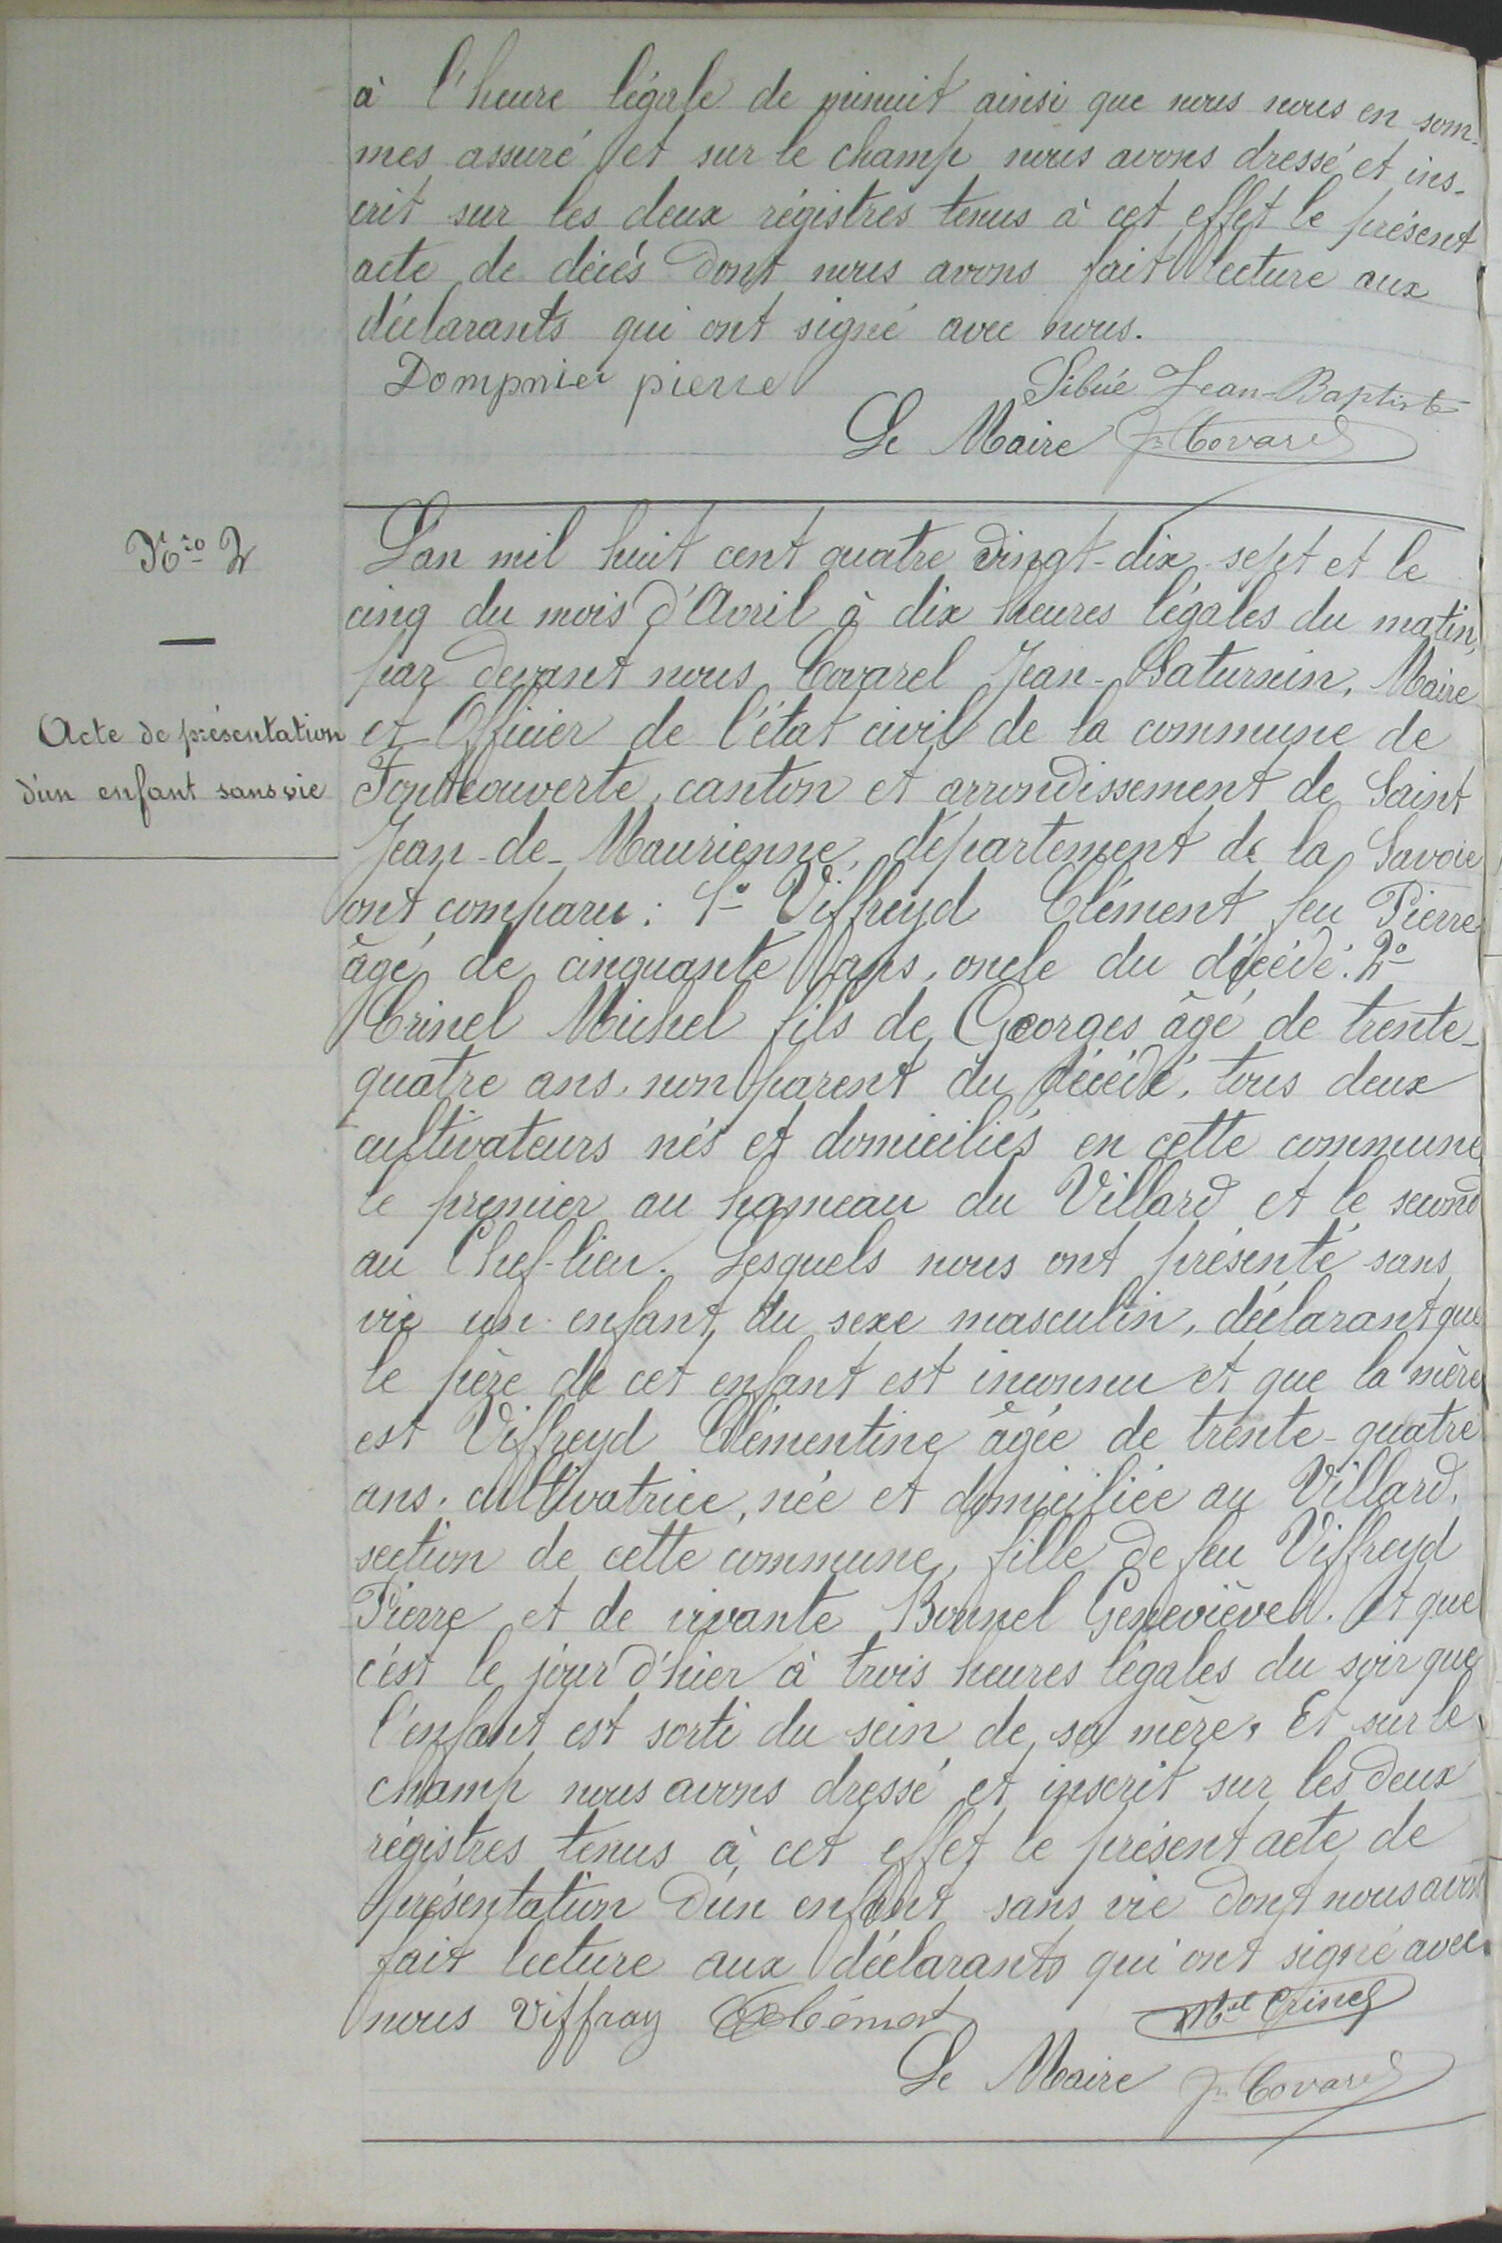 à l'heure légale de minuit ainsi que nous nous en som-
mes assuré et sur le champ nous avons dressé et ins-
crit sur les deux régistres tenus à cet effet le présent
acte de décés dont nous avons fait lecture aux
déclarants qui ont signé avec nous.
Dompnier pierre Sibué Jean-Baptiste
Le Maire Jn Covarel
Nro 2
Acte de présentation
d'un enfant sans vie
L'an mil huit cent quatre vingt-dix-sept et le
cinq du mois d'Avril à dix heures légales du matin,
par devant nous Covarel Jean-Saturnin, Maire
et Officier de l'état civil de la commune de
Fontcouverte, canton et arrondissement de Saint
Jean-de-Maurienne, département de la Savoie
ont comparu: 1o Viffreyd Clément feu Pierre
âgé de cinquante ans, oncle du décédé. 2o
Crinel Michel fils de Georges âgé de trente-
quatre ans, non parent du décédé, tous deux
cultivateurs nés et domiciliés en cette commune
le premier au hameau du Villard et le second
au Chef-lieu. Lesquels nous ont présenté sans
vie un enfant du sexe masculin, déclarant que
le père de cet enfant est inconnu et que la mère
est Viffreyd Clémentine âgée de trente-quatre
ans, cultivatrice, née et domiciliée au Villard,
section de cette commune, fille de feu Viffreyd
Pierre et de vivante Bonnel Geneviève. Et que
c'est le jour d'hier à trois heures légales du soir que
l'enfant est sorti du sein de sa mère. Et sur le
champ nous avons dressé et inscrit sur les deux
régistres tenus à cet effet le présent acte de
présentation d'un enfant sans vie dont nous avons
fait lecture aux déclarants qui ont signé avec
nous Viffray Clémont Mel Crinel
Le Maire Jn Covarel